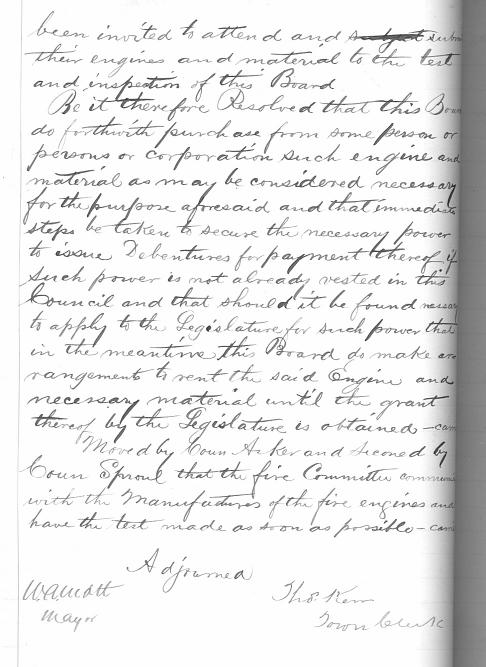 been invited to attend and subject subm
their engines and material to the test
and inspection of this Board
Be it therefore Resolved that this Boar
do forthwith purchase from some person or
persons or corporation such engine and
material as may be considered necessary
for the purpose aforesaid and that immediate
steps be taken to secure the necessary power
to issue Debentures for payment thereof if
such power is not already vested in this
Council and that should it be found necessary
to apply to the Legislature for such power that
in the meantime this Board do make ar
rangements to rent the said Engine and
necessary material until the grant
thereof by the Legislature is obtained - carr
Moved by Coun Acker and seconed by
Coun Sproul that the fire Committee commun
with the Manufactures of the fire engines and
have the test made as soon as possible - carr
Adjourned
W.A. Mott
Mayor
Thos. Kerr
Town Clerk